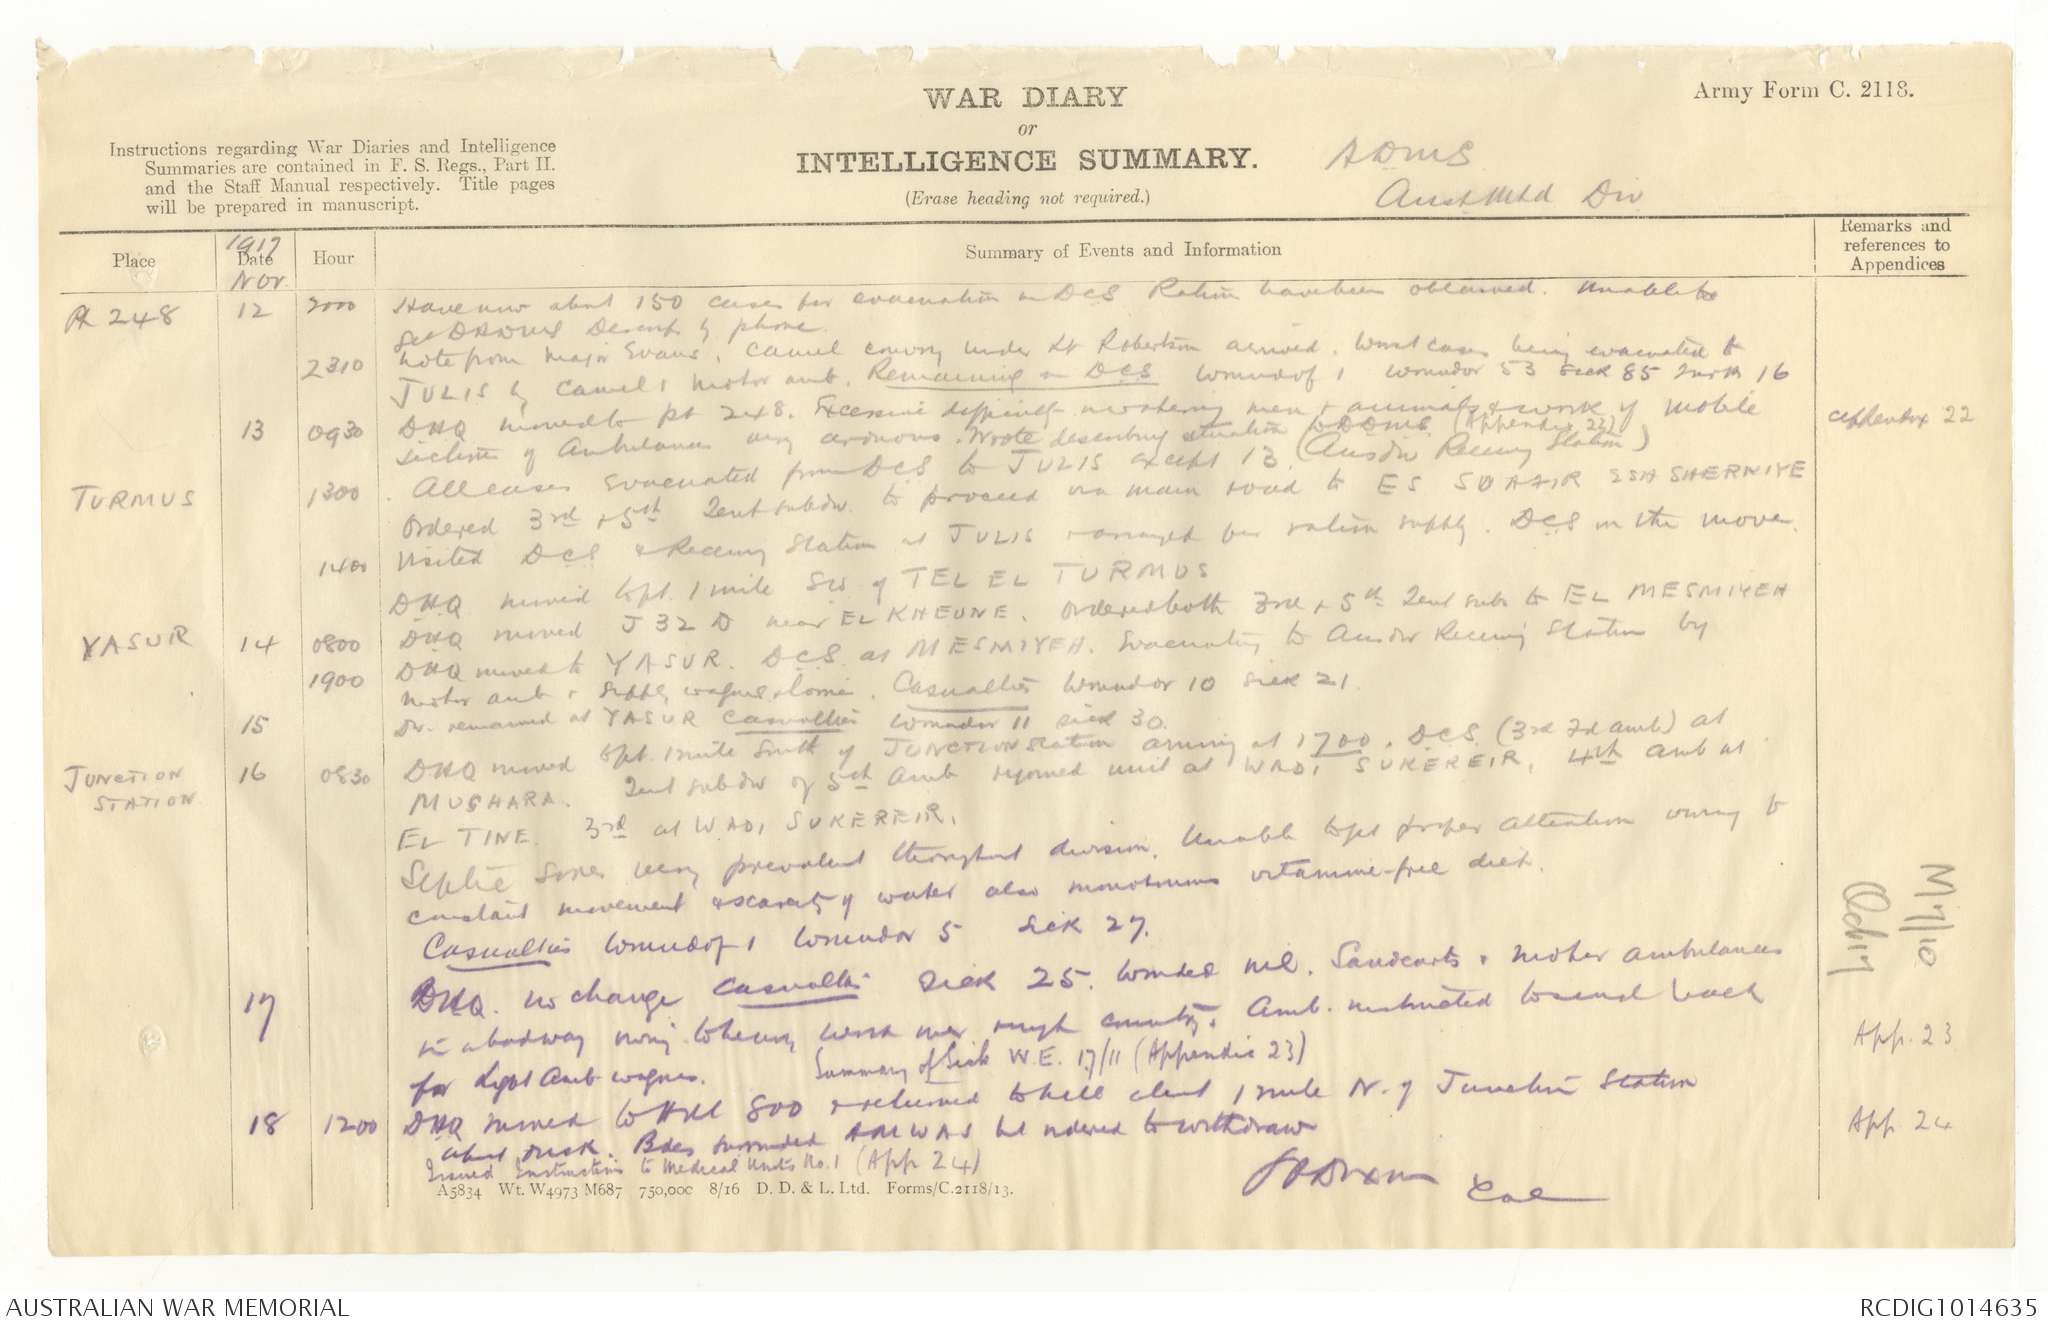 WAR DIARY
or
INTELLIGENCE SUMMARY.
(Erase heading not required.)
Army Form C. 2118.
Instructions regarding War Diaries and Intelligence
Summaries are contained in F. S. Regs., Part II.
and the Staff Manual respectively. Title pages
will be prepared in manuscript.
ADMS
Aust Mtd Div
Place
1917
Date
Nov.
Hour
Summary of Events and Information
Remarks and
references to
Appendices
Pt 248 12 2000 Have now about 150 cases for evacuation in DCS Rations have been obtained. Unable to
get DADMS Descorps by phone.
2310 Note from Major Evans. Camel convoy under Lt Robertson arrived. Worst cases being evacuated to
JULIS by Camel & motor amb. Remaining in DCS Wounded of 1 Wounded or 53 Sick 85 Turks 16
13 0930 DHQ moved to pt 248. Excessive difficulty in watering men & animals & work of mobile Appendix 22
sections of Ambulances very arduous. Wrote describing situation to DDMS (Appendix 22)
1300 All cases evacuated from DCS to JULIS except 13 (Ausdiv Receiving Station)
TURMUS
Ordered 3rd & 5th Tent subdiv. to proceed via main road to ES SUAFIR ESH SHERKIYE
1400 Visited DCS & Receiving Station at JULIS & arranged for ration supply. DCS on the move.
DHQ moved to pt. 1 mile SW of TEL EL TURMUS
YASUR 14 0800 DHQ moved J 32 D near EL KHEUNE. Ordered both 3rd & 5th Tent subs to EL MESMIYEH
1900 DHQ moved to YASUR. DCS at MESMIYEH. Evacuating to Ausdiv Receiving Station by
motor amb & supply wagons & lorries. Casualties Wounded or 10 Sick 21.
15 Div. remained at YASUR Casualties Wounded or 11 sick 30.
JUNCTION
STATION
16 0830 DHQ moved to pt. 1 mile South of JUNCTION Station arriving at 1700. DCS (3rd Fd amb) at
MUGHARA. Tent subdiv of 5th Amb rejoined unit at WADI SUKEREIR. 4th Amb at
EL TINE. 3rd at WADI SUKEREIR.
Septic sores very prevalent throughout division. Unable to get proper attention owing to
constant movement & scarcity of water also monotonous vitamine-free diet.
Casualties Wounded of 1 Wounded or 5 Sick 27.
17 DHQ. no change Casualties Sick 25. Wounded nil. Sandcarts & motor ambulances
in a bad way owing to heavy work over rough country. Amb. instructed to send back
for Light Amb wagons. Summary of Sick W.E. 17/11 (Appendix 23) App. 23
18 1200 DHQ moved to Hill 800 & returned to hill about 1 mile N. of Junction Station
about dusk. Bdes surrounded AMWAS but ordered to withdraw
Issued Instructions to Medical Units No. 1 (App 24) App 24
Col
M7/10
A5834 Wt. W4973 M687 750,000 8/16 D. D. & L. Ltd. Forms/C.2118/13.
AUSTRALIAN WAR MEMORIAL
RCDIG1014635